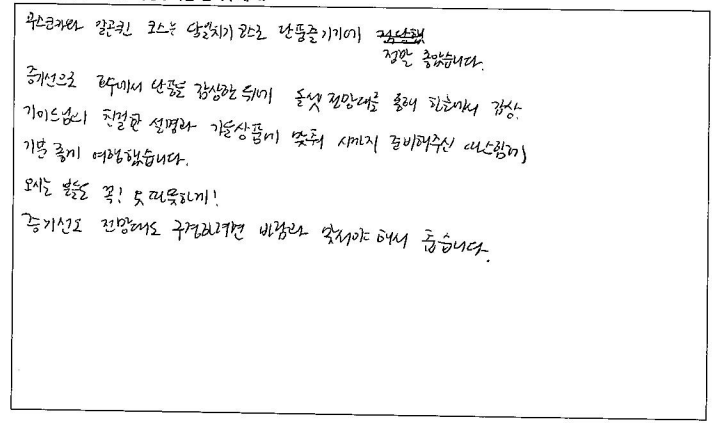 무스코카와 알곤퀸 코스는 당일치기 코스로 단풍즐기기에
정말 좋았습니다.
증기선으로 호수에서 단풍을 감상한 뒤에 돌셋 전망대를 통해 한눈에서 감상.
가이드님의 친절한 설명과 가을상품에 맞춰 시까지 준비해주신 세심함에
기분 좋게 여행했습니다.
오시는 분들은 꼭! 옷 따뜻하게!
증기선도 전망대도 구경하려면 바람과 맞서야 해서 춥습니다.